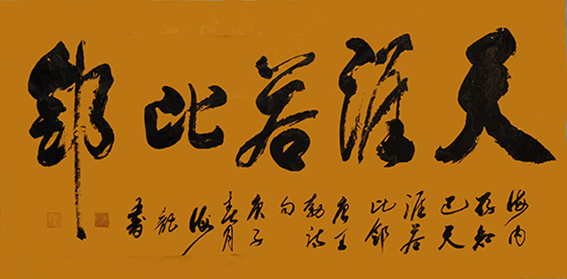 天涯若比鄰
海内
存知
己天
涯若
比鄰
唐王
勃詩
句
庚子
春月
海
龍
書